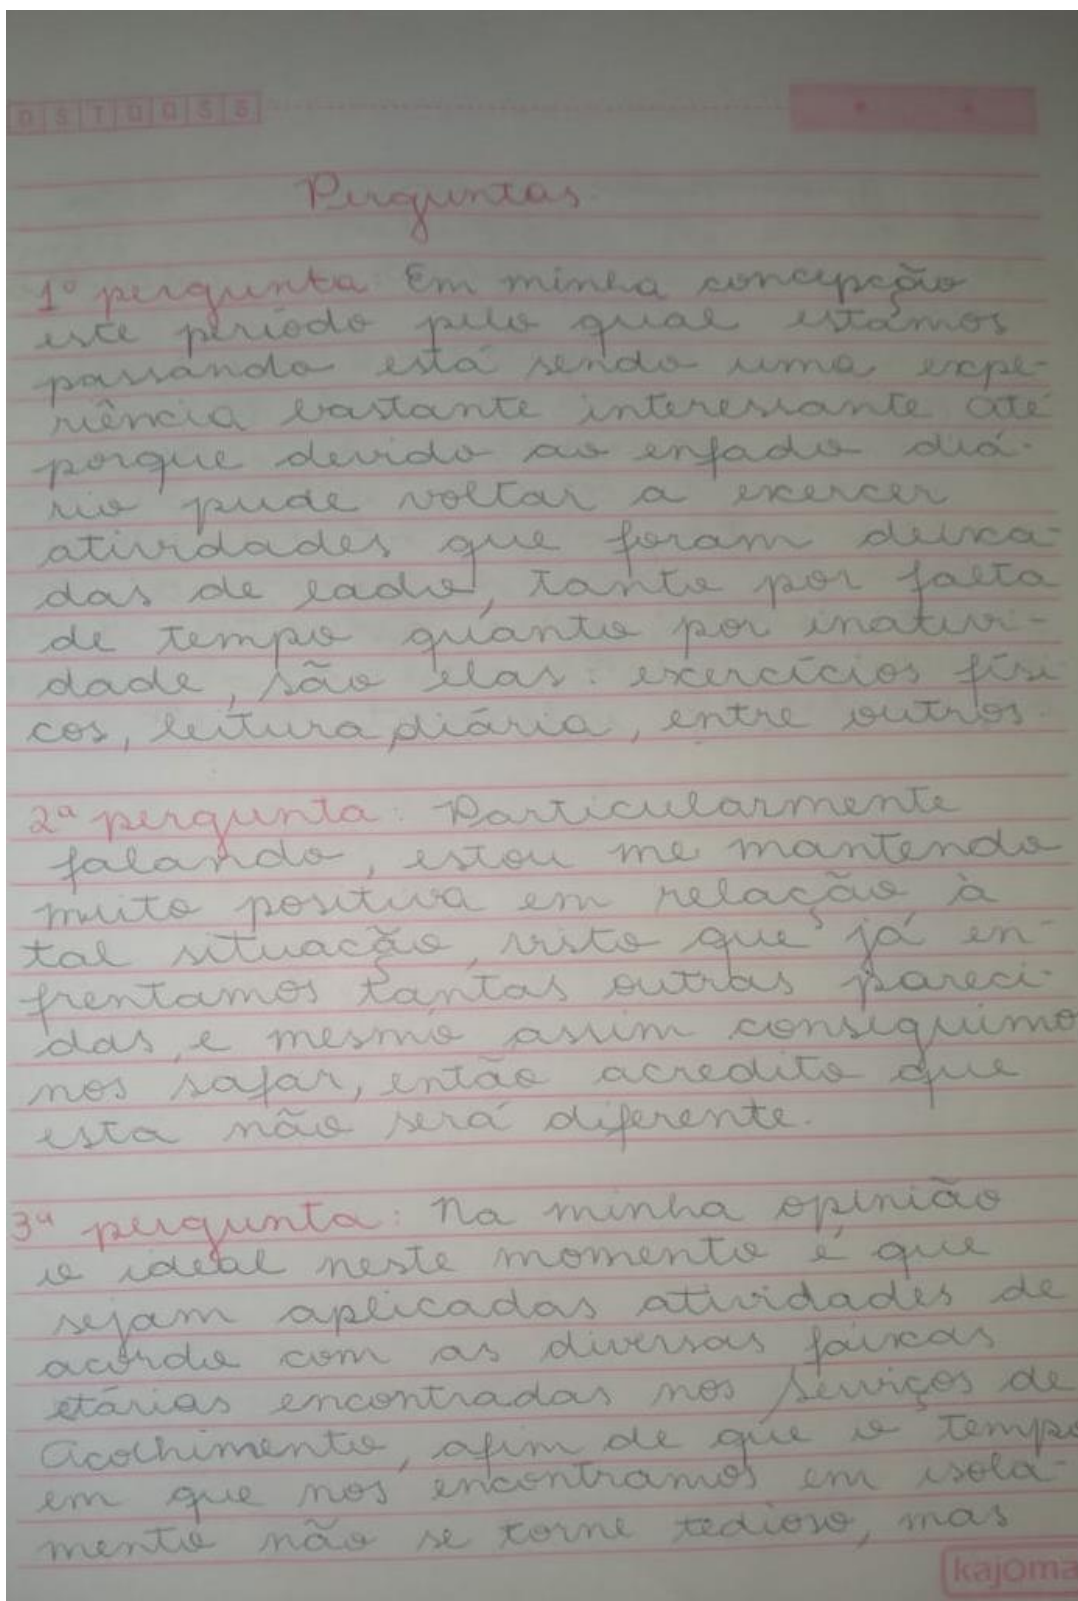 D S T Q Q S S
Perguntas
1º pergunta: Em minha concepção
este período pelo qual estamos
passando está sendo uma expe-
riência bastante interessante até
porque devido ao enfado diá-
rio pude voltar a exercer
atividades que foram deixa-
das de lado, tanto por falta
de tempo quanto por inativi-
dade, são elas: exercícios físi
cos, leitura diária, entre outros.
2ª pergunta: Particularmente
falando, estou me mantendo
muito positiva em relação à
tal situação, visto que já en-
frentamos tantas outras pareci-
das, e mesmo assim conseguimo
nos safar, então acredito que
esta não será diferente.
3ª pergunta: Na minha opinião
o ideal neste momento é que
sejam aplicadas atividades de
acordo com as diversas faixas
etárias encontradas nos Serviços de
Acolhimento, afim de que o tempo
em que nos encontramos em isola-
mento não se torne tedioso, mas
kajoma